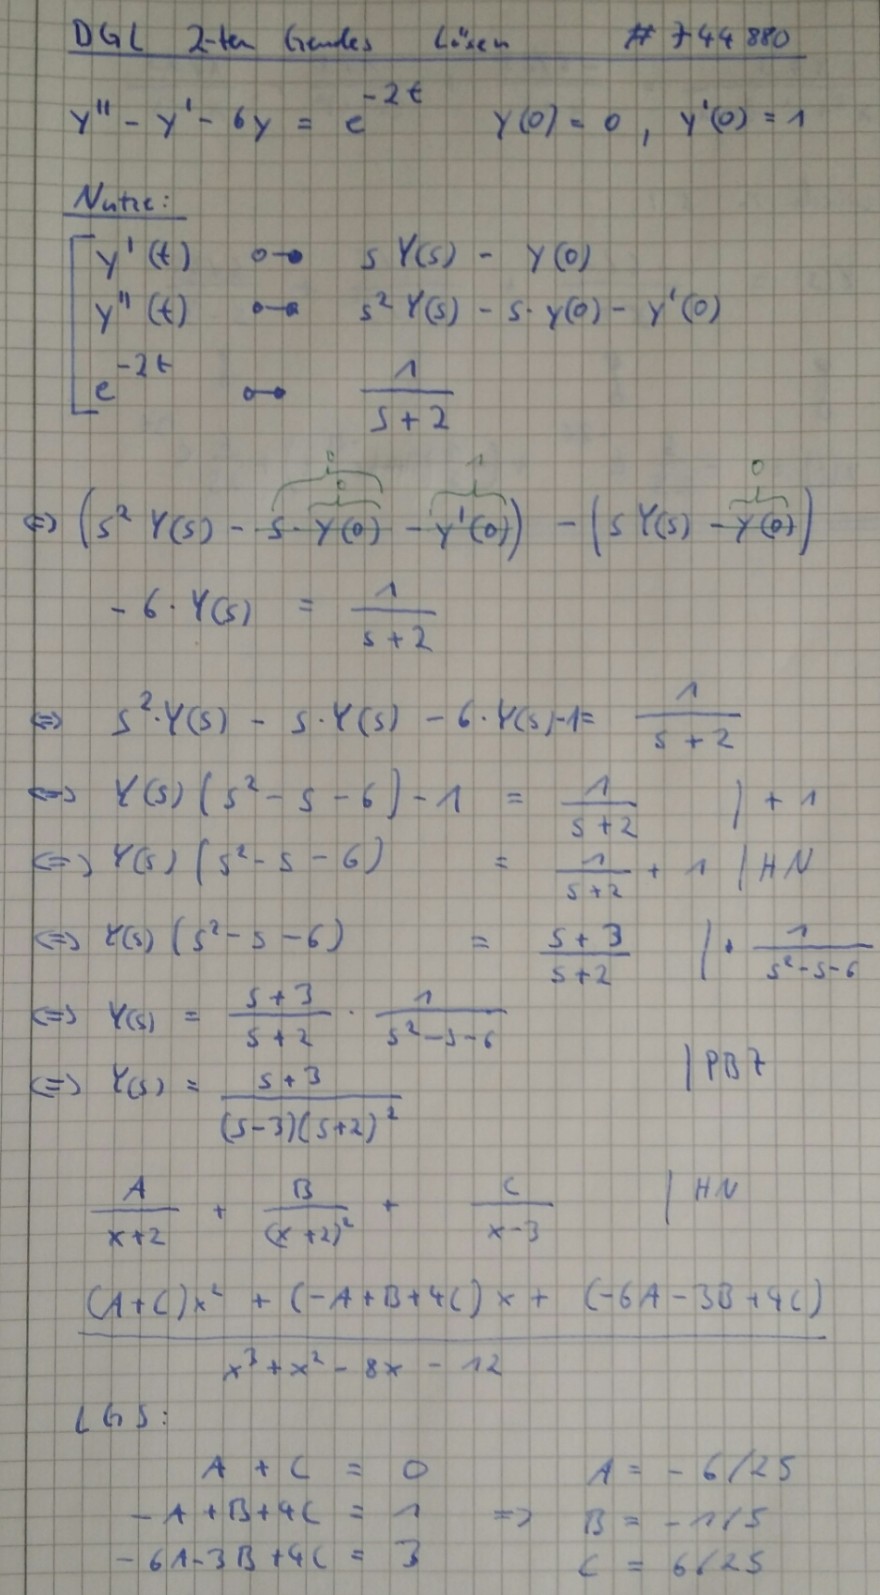 DGL 2-ten Grades Lösen # 744880
y'' - y' - 6y = e^{-2t} y(0) = 0 , y'(0) = 1
Nutze:
y'(t) ○─● s Y(s) - y(0)
y''(t) ○─● s² Y(s) - s · y(0) - y'(0)
e^{-2t} ○─● 1/(s+2)
0 1 0
0
⇔ (s² Y(s) - s · y(0) - y'(0)) - (s Y(s) - y(0))
- 6 · Y(s) = 1/(s+2)
⇔ s² · Y(s) - s · Y(s) - 6 · Y(s) - 1 = 1/(s+2)
⇔ Y(s) (s² - s - 6) - 1 = 1/(s+2) | + 1
⇔ Y(s) (s² - s - 6) = 1/(s+2) + 1 | HN
⇔ Y(s) (s² - s - 6) = (s+3)/(s+2) | · 1/(s²-s-6)
⇔ Y(s) = (s+3)/(s+2) · 1/(s²-s-6)
⇔ Y(s) = (s+3)/((s-3)(s+2)²) | PBZ
A/(x+2) + B/(x+2)² + C/(x-3) | HN
((A+C)x² + (-A+B+4C)x + (-6A-3B+4C))/(x³+x²-8x-12)
LGS:
A + C = 0 A = -6/25
-A+B+4C = 1 => B = -1/5
-6A-3B+4C = 3 C = 6/25